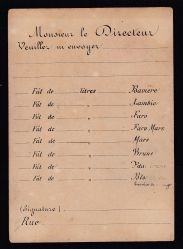 Monsieur le Directeur
Veuillez m'envoyer
Fût de litres Bavière
Fût de " Lambic
Fût de " Faro
Fût de " Faro Mars
Fût de " Mars
Fût de " Brune
Fût de "
Fût de "
(Signature)
Rue